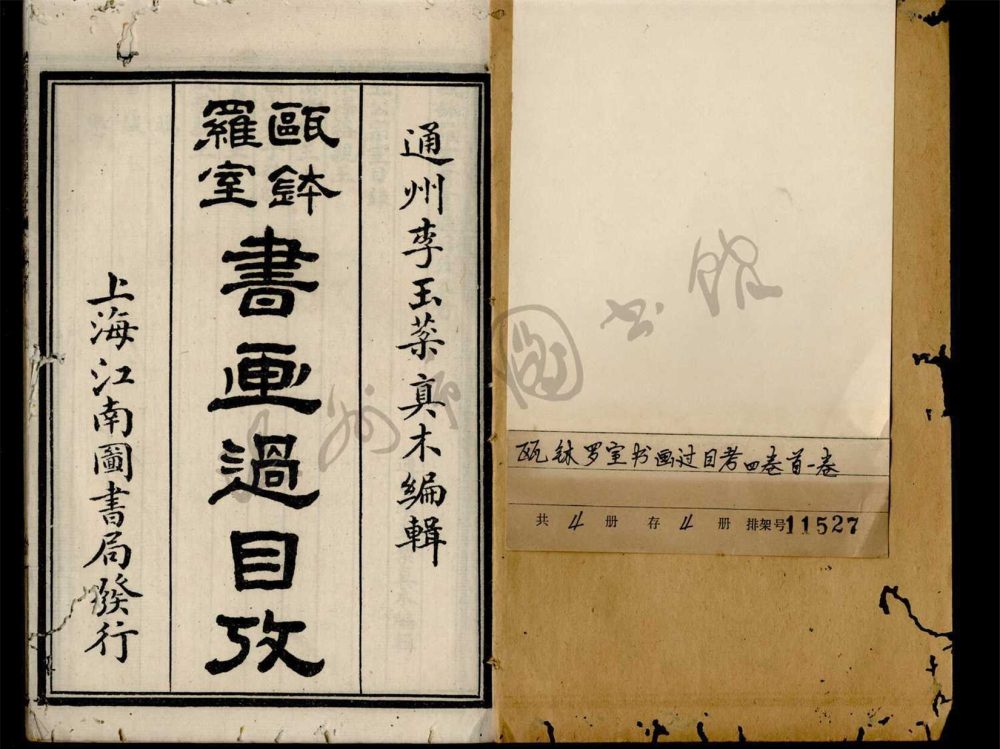 通州李玉棻真木編輯
甌鉢羅室書画過目攷
上海江南圖書局發行
瓯钵罗室书画过目考四卷首一卷
共 4 册 存 4 册 排架号11527